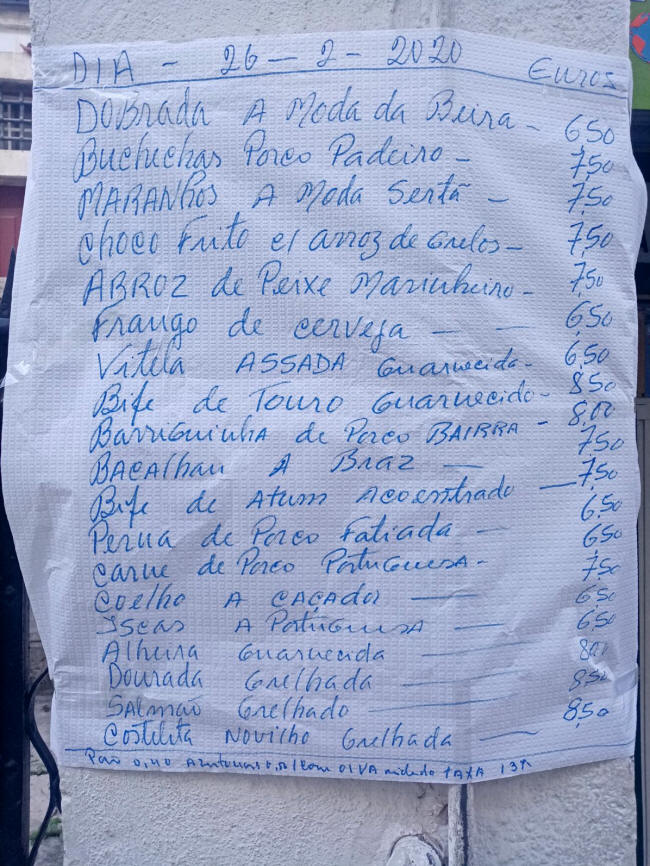 DIA - 26 - 2 - 2020 Euros
DOBRADA A Moda da Beira - 6,50
BUCHECHAS PORCO PADEIRO - 7,50
MARANHOS A Moda Sertã - 7,50
CHOCO Frito c/ arroz de Grelos - 7,50
ARROZ de Peixe Marinheiro - 7,50
Frango de cerveja - - 6,50
Vitela ASSADA Guarnecida - 6,50
Bife de Touro Guarnecido - 8,50
BARRIGUINHA de Porco BAIRRA - 8,00
BACAlhau A Braz - 7,50
Bife de Atum Acoentrado - 7,50
Perna de Porco Fatiada - 6,50
Carne de Porco PORTUGUESA - 6,50
Coelho A CAÇADOR - 7,50
Iscas A PORTUGUESA - 6,50
Alheira Guarnecida - 6,50
Dourada Grelhada - 8,00
SAlmão Grelhado - 8,50
Costeleta Novilho Grelhada - 8,50
Pão 0,40 Azeitonas com o IVA tAXA 13%